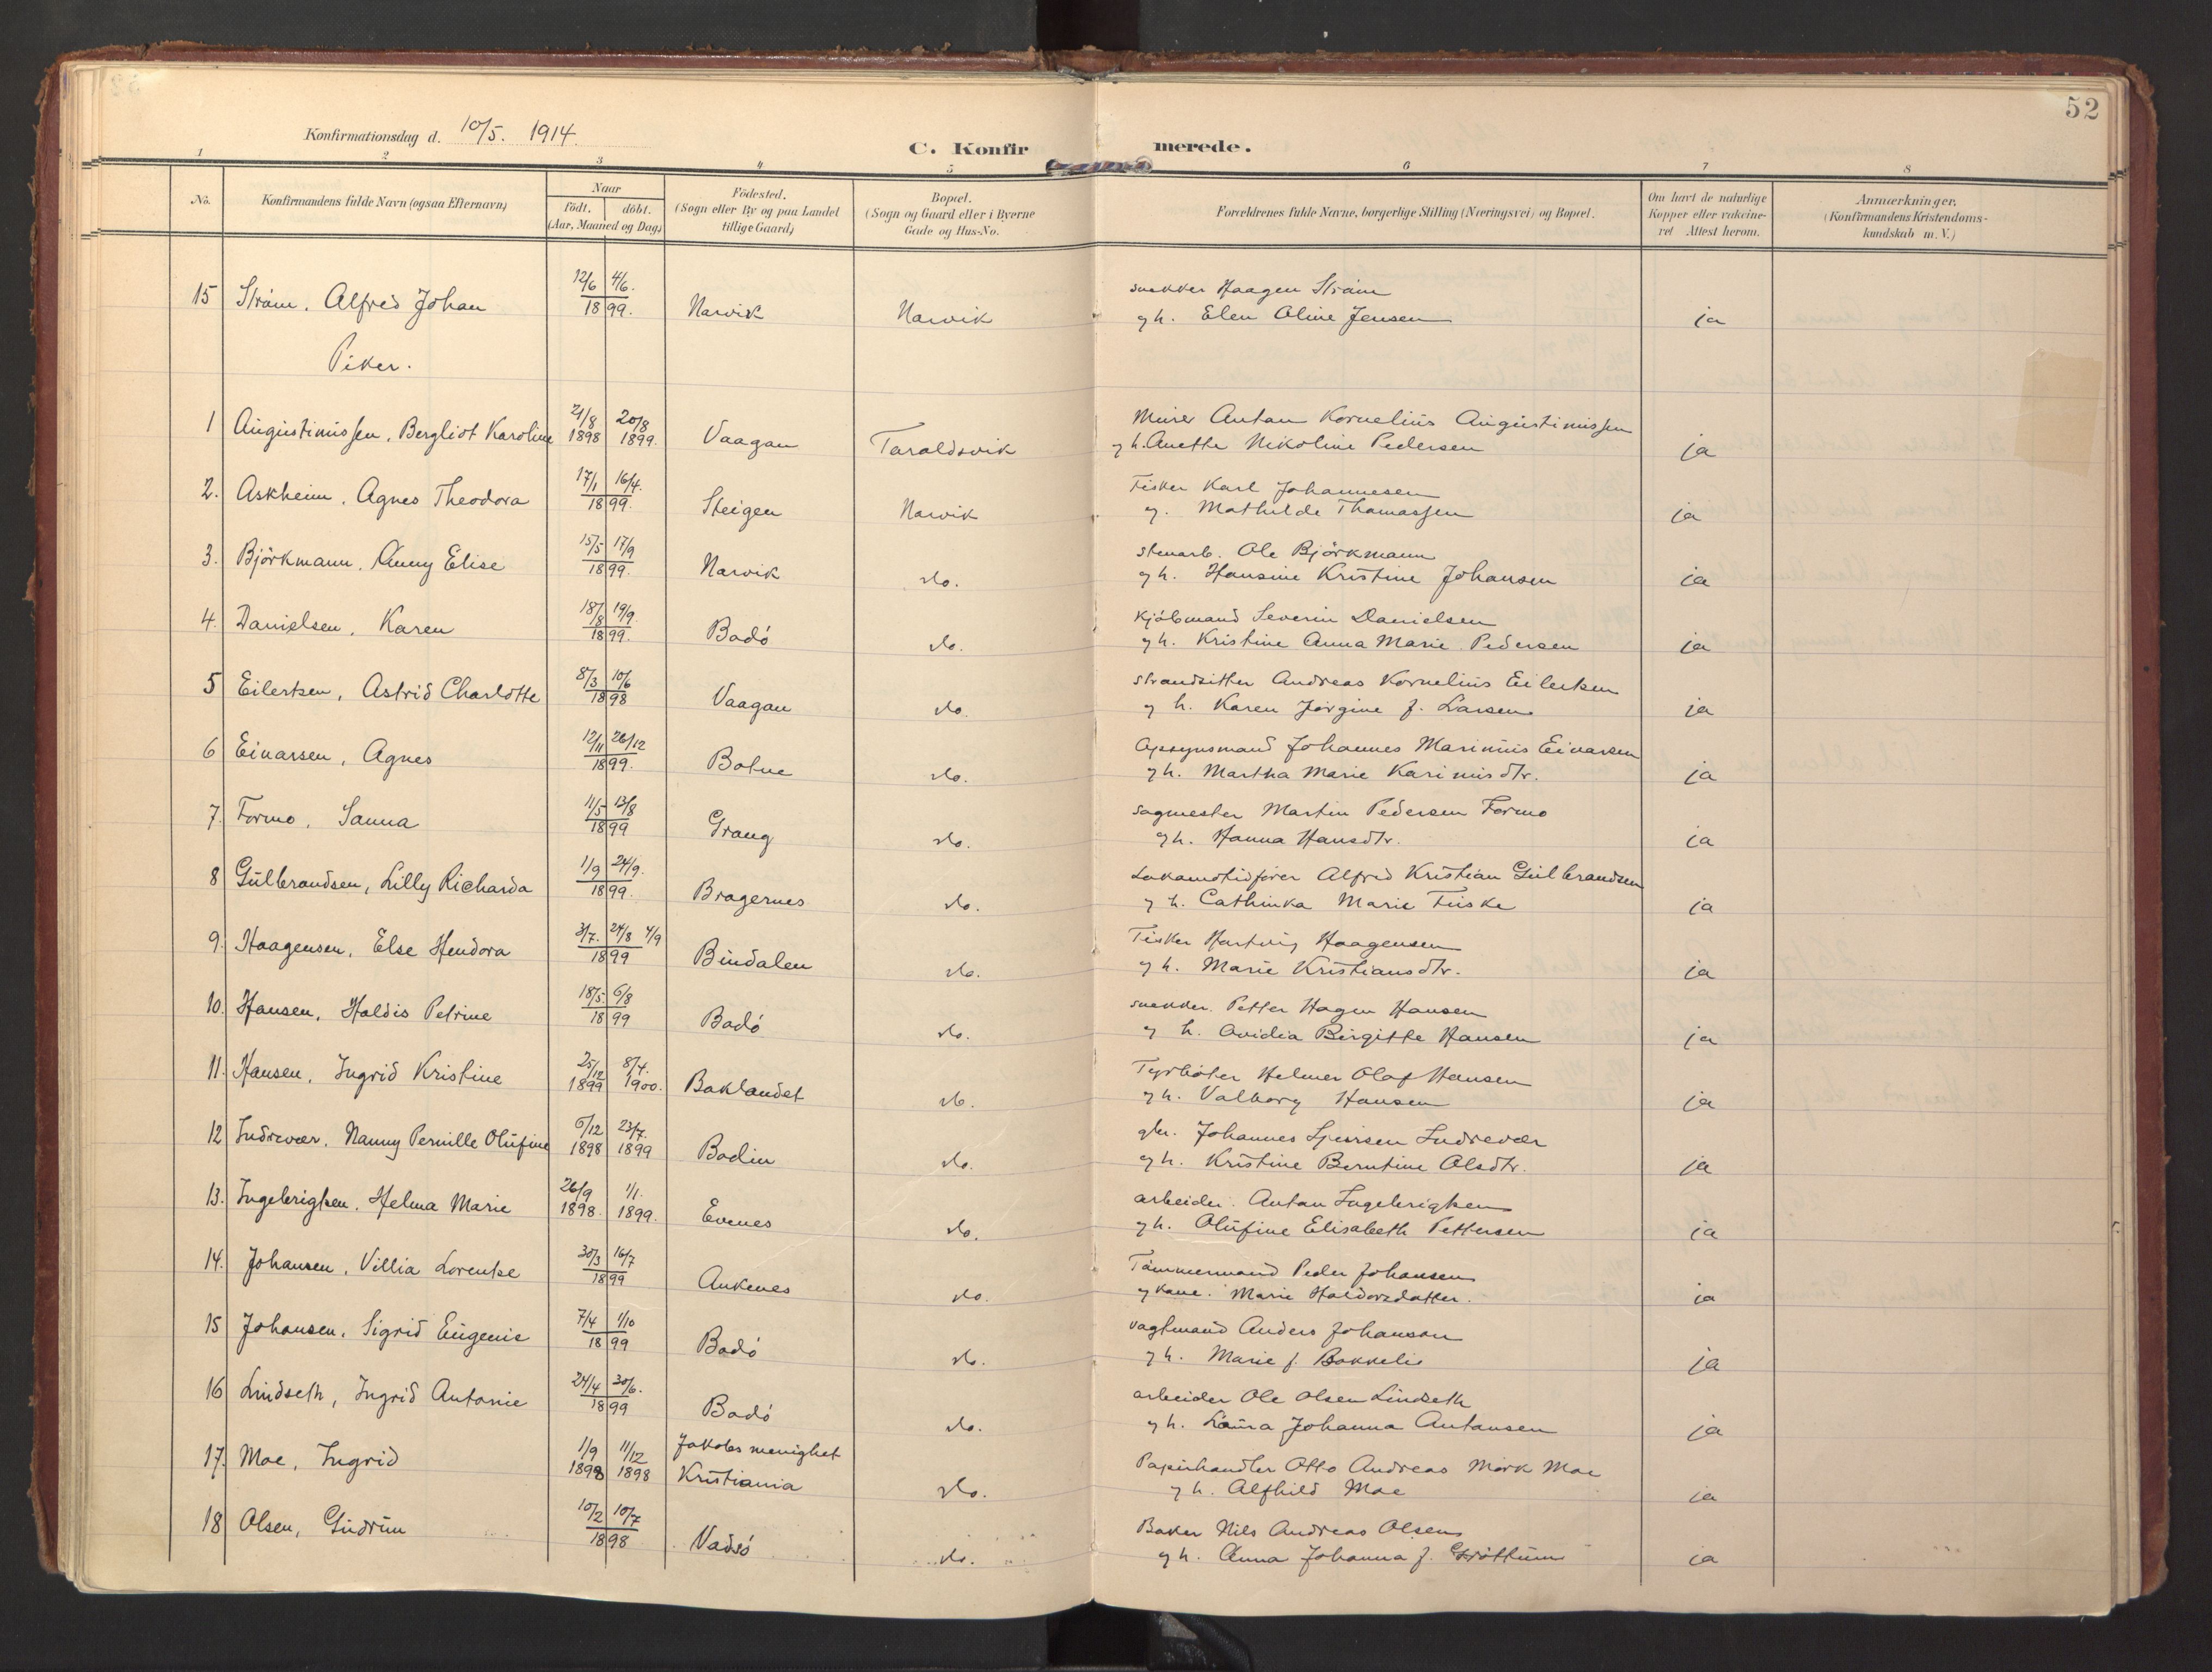 52
Konfirmationsdag d. 10/5. 1914.
C. Konfirmerede.
1 2 3 4 5 6 7 8
No.
Konfirmandens fulde Navn (ogsaa Efternavn)
Naar
födt. döbt.
(Aar, Maaned og Dag)
Födested.
(Sogn eller By og paa Landet
tillige Gaard)
Bopæl.
(Sogn og Gaard eller i Byerne
Gade og Hus-No.
Forældrenes fulde Navne, borgerlige Stilling (Næringsvei) og Bopæl.
Om havt de naturlige
Kopper eller vakcine-
ret Attest herom.
Anmærkninger.
(Konfirmandens Kristendoms-
kundskab m. V.)
15 Ström, Alfred Johan 12/6 4/6. 1899. Narvik Narvik snekker Haagen Ström
g h. Elen Oline Jensen ja
Piker.
1 Augustinussen, Bergliot Karoline 21/8 1898 20/8 1899. Vaagan Taraldsvik Murer Anton Kornelius Augustinussen
g h. Anette Nikoline Pedersen ja
2. Askheim, Agnes Theodora 17/1 16/4. 1899. Steigen Narvik Fisker Karl Johannesen
g. Mathilde Thomassen ja
3. Björkmann, Anny Elise 15/5 17/9 1899. Narvik do. stenarb. Ole Björkmann
g h. Hansine Kristine Johansen ja
4. Danielsen, Karen 18/8 19/9. 1899. Bodö do. Kjöbmand Severin Danielsen
g h. Kristine Anna Marie Pedersen ja
5 Eilertsen, Astrid Charlotte 8/3 10/6 1898 Vaagan do. strandsitter Andreas Kornelius Eilertsen
g h. Karen Jörgine f. Larsen ja
6 Einarsen, Agnes 12/11 26/12 1899. Botne do. Opsynsmand Johannes Marinius Einarsen
g h. Martha Marie Karinusdtr. ja
7. Formo, Sanna 11/5 13/8 1899 Grong do. sagmester Martin Pedersen Formo
g h. Hanna Hansdtr. ja
8 Gulbrandsen, Lilly Richarda 1/9 24/9. 1899. Bragernes do. Lokomotivförer Alfred Kristian Gulbrandsen
g h. Cathinka Marie Fuske ja
9. Haagensen, Else Hendora 3/7. 24/8 4/9 1899 Bindalen do. Fisker Hartvig Haagensen
g h. Marie Kristiansdtr. ja
10. Hansen, Haldis Petrine 18/5. 6/8 1899 Bodö do. snekker. Petter Hagen Hansen
g h. Ovidia Birgitte Hansen ja
11. Hansen, Ingrid Kristine 25/12 1899 8/4. 1900. Baklandet do. Fyrböter Helmer Olaf Hansen
g h. Valborg Hansen ja
12 Indrevær, Nanny Pernille Olufine 6/12 1898 23/7. 1899 Bodin do. gbr. Johannes Indrevær
g h. Kristine Berntine Olsdtr. ja
13. Ingebrigtsen, Helma Marie 26/9 1898. 1/1. 1899. Evenes do. arbeider. Anton Ingebrigtsen
g h. Olufine Elisabeth Pettersen ja
14. Johansen, Villia Lorentse 30/3 16/7 1899 Ankenes do. Tömmermand Peder Johansen
g kone. Marie Haldorsdatter. ja
15 Johansen, Sigrid Eugenie 7/4 1/10 1899 Bodö do. vagtmand Anders Johansen
g h. Marie f. Bakkelie ja
16 Lindseth, Ingrid Antonie 24/4 30/6. 1899 Bodö do. arbeider Ole Olsen Lindseth
g h. Laura Johanna Antonsen ja
17. Moe, Ingrid 1/9 1898 11/12 1898 Jakobs menighet
Kristiania do. Papirhandler Otto Andreas Mörk Moe
g h. Alfhild Moe ja
18 Olsen, Gudrun 10/2 10/7 1898 Vadsö do. Baker Nils Andreas Olsen
g h. Anna Johanna f. Gröttum ja